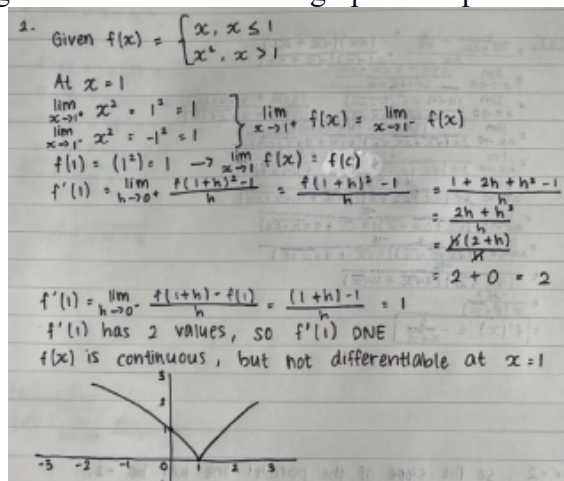 2. Given f(x) = { x, x ≤ 1
x², x > 1
At x = 1
lim x→1⁺ x² = 1² = 1
lim x→1⁻ x² = -1² = 1 } lim x→1⁺ f(x) = lim x→1⁻ f(x)
f(1) = (1²) = 1 → lim x→1 f(x) = f(c)
f'(1) = lim h→0⁺ f(1+h)²-1 / h = f(1+h)²-1 / h = 1 + 2h + h² - 1 / h
= 2h + h² / h
= h(2+h) / h
= 2 + 0 = 2
f'(1) = lim h→0⁻ f(1+h) - f(1) / h = (1+h)-1 / h = 1
f'(1) has 2 values, so f'(1) DNE
f(x) is continuous, but not differentiable at x = 1
3
2
1
-3 -2 -1 0 1 2 3